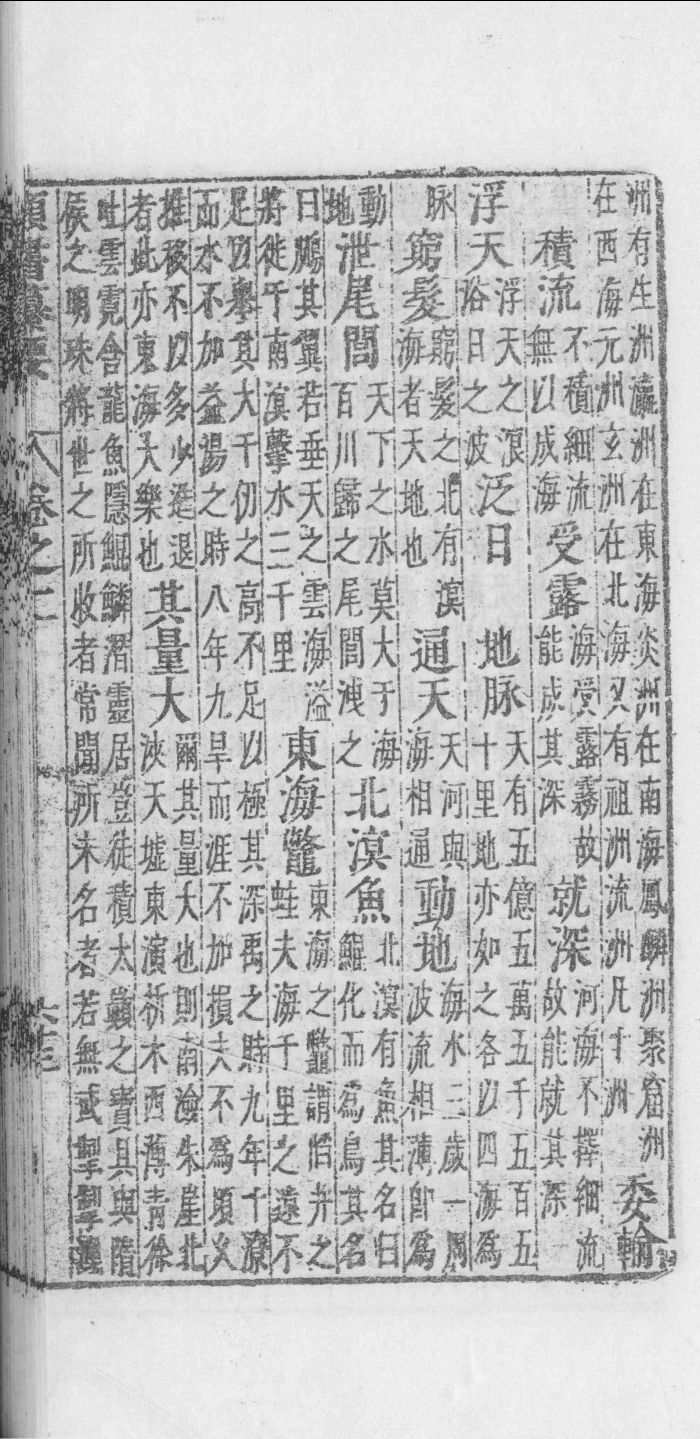 洲有生洲瀛洲在東海炎洲在南海鳳麟洲聚窟洲
在西海元洲玄洲在北海又有祖洲流洲凡十洲
委輸
積流
不積細流
無以成海
受露
海受露霧故
能成其深
就深
河海不擇細流
故能就其深
浮天
浮天之浪
浴日之波
泛日
地脉
天有五億五萬五千五百五
十里地亦如之各以四海為
脉
窮髮
窮髮之北有溟
海者天地也
通天
天河與
海相通
動地
海水三歲一周
波流相薄即為
動
地
泄尾閭
天下之水莫大于海
百川歸之尾閭洩之
北溟魚
北溟有魚其名曰
鯤化而為鳥其名
曰鵬其翼若垂天之雲海溢
將徙于南溟擊水三千里
東海鼈
東海之鼈謂培井之
蛙夫海千里之遠不
足以舉其大千仞之高不足以極其深禹之時九年十潦
而水不加益湯之時八年九旱而涯不加損夫不為頃久
推移不以多少進退
者此亦東海大樂也
其量大
爾其量大也則南澰朱崖北
浹天墟東演析木西薄青徐
吐雲霓含龍魚隱鯤鱗潛靈居豈徒積太巔之寶貝與隋
侯之明珠將世之所收者常聞所未名者若無或
類書纂要 卷之二